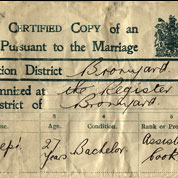 Certified Copy of an
Pursuant to the Marriage
tion District Bromyard
mnized at the Register
istrict of Bromyard
3 4 5
me. Age. Condition. Rank or Pro
27 years Bachelor Assist
cook